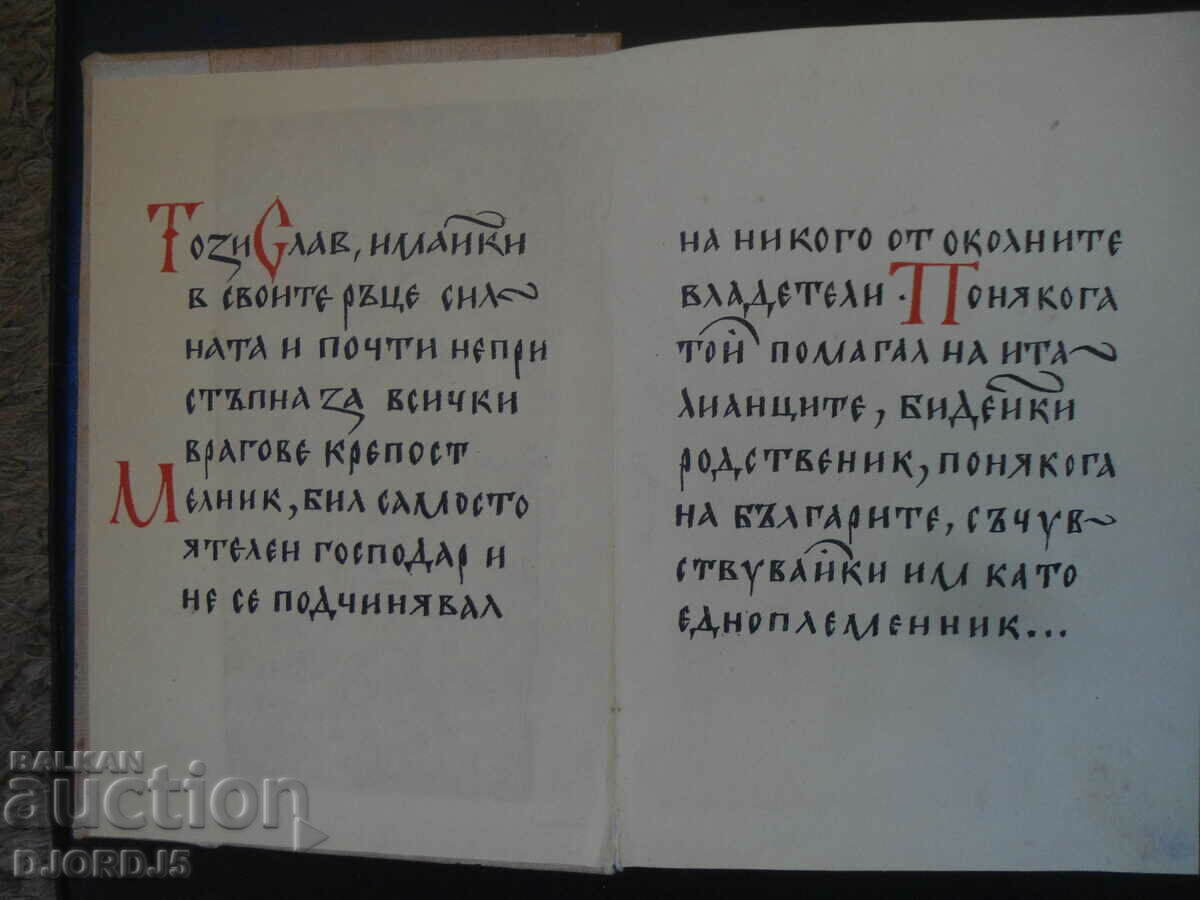 Този Слав, имайки
в своите ръце сил~
ната и почти непри
стъпна за всички
врагове крепост
Мелник, бил самосто
ятелен господар и
не се подчинявал
на никого от околните
владетели. Понякога
той помагал на ита~
лианците, бидейки
родственик, понякога
на българите, съчув~
ствувайки им като
едноплеменник...
BALKAN
auction
DJORDJ5